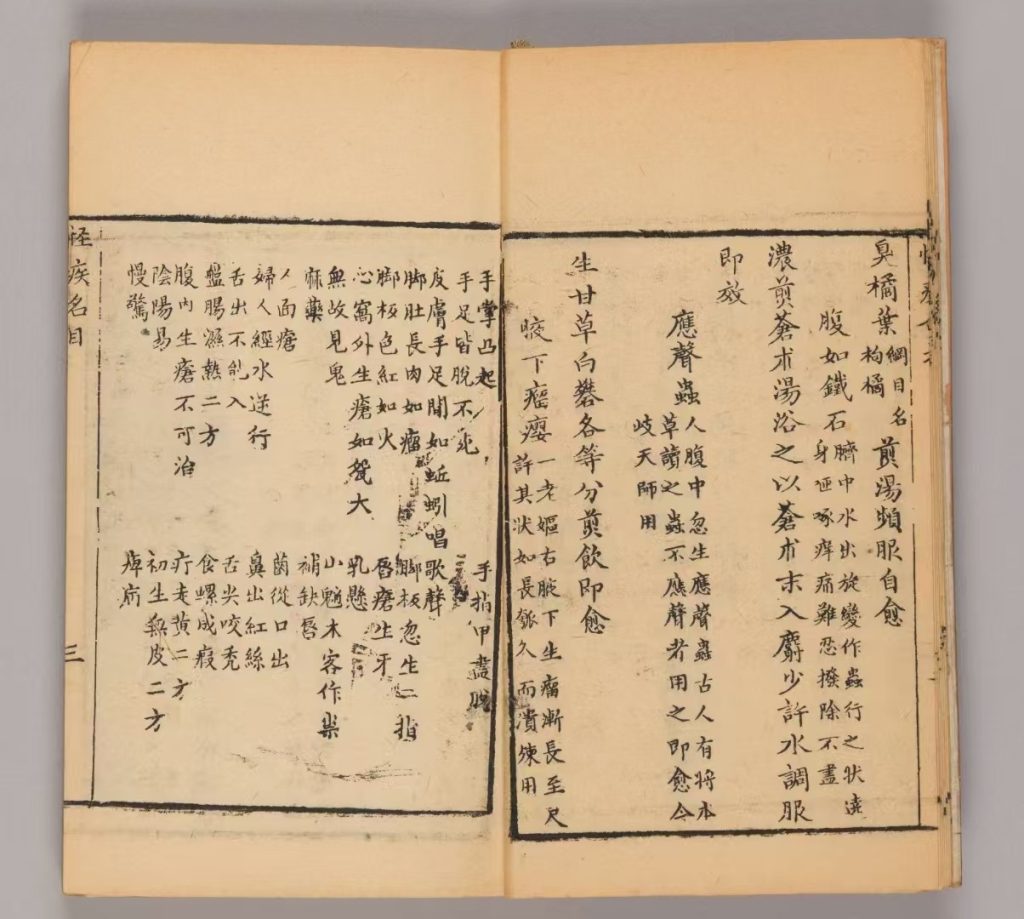 臭橘葉綱目名
枸橘煎湯頻服自愈
腹如鐵石臍中水出旋變作蟲行之狀遶
身咂啄痒痛難忍撥除不盡
濃煎蒼朮湯浴之以蒼朮末入麝少許水調服
即效
應聲蟲人腹中忽生應聲蟲古人有將本
草讀之蟲不應聲者用之即愈今
岐天師用
生甘草白礬各等分煎飲即愈
腋下瘤癭一老嫗右腋下生瘤漸長至尺
許其狀如長瓠久而潰爛用
手掌凸起 手指甲盡脫
手足皆脫不死
皮膚手足間如蚯蚓唱歌聲
脚肚長肉如瘤 脚板忽生二指
脚板色紅如火 唇瘡生牙
心窩外生瘡如碗大 乳懸
無故見鬼 山魈木客作祟
麻藥 補缺唇
人面瘡 菌從口出
婦人經水逆行 鼻出紅絲
舌出不能入 舌尖咬禿
盤腸濕熱二方 食螺成瘕
腹內生瘡不可治 疔走黄二方
陰陽易 初生無皮二方
慢驚 痺疬
疾名目 三